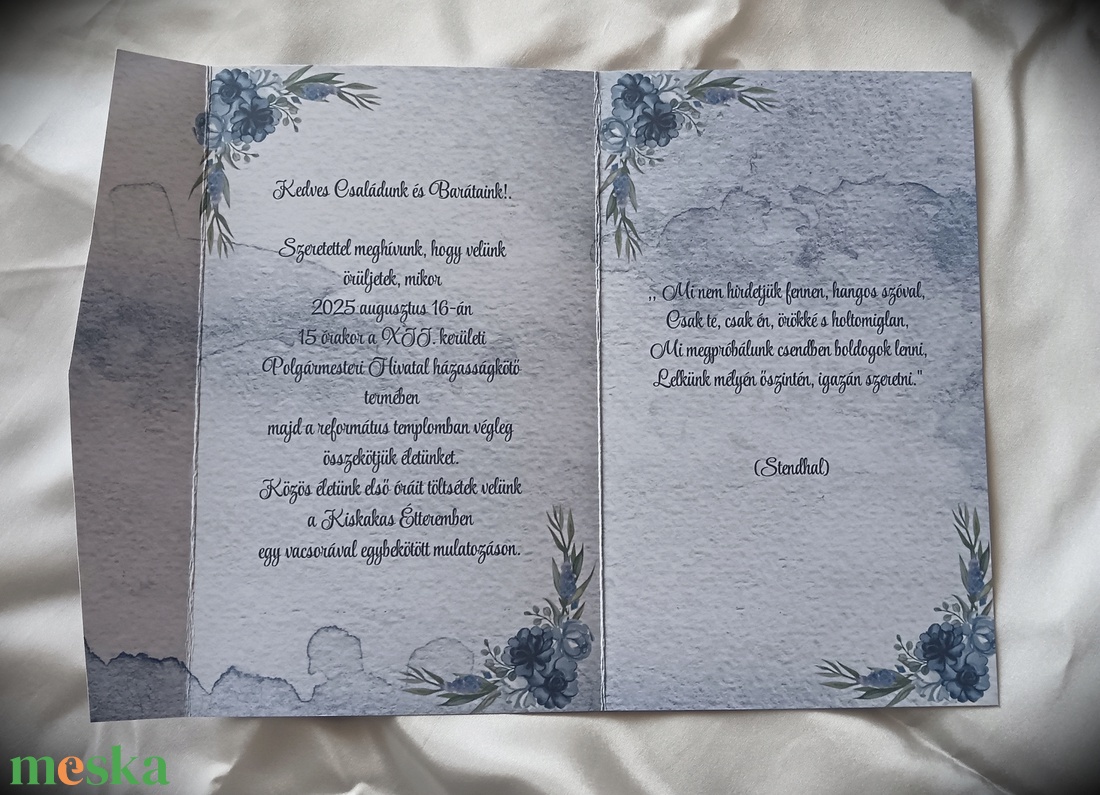 Kedves Családunk és Barátaink!.
Szeretettel meghívunk, hogy velünk
örüljetek, mikor
2025 augusztus 16-án
15 órakor a XII. kerületi
Polgármesteri Hivatal házasságkötő
termében
majd a református templomban végleg
összekötjük életünket.
Közös életünk első óráit töltsétek velünk
a Kiskakas Étteremben
egy vacsorával egybekötött mulatozáson.
,, Mi nem hirdetjük fennen, hangos szóval,
Csak te, csak én, örökké s holtomiglan,
Mi megpróbálunk csendben boldogok lenni,
Lelkünk mélyén őszintén, igazán szeretni."
(Stendhal)
meska